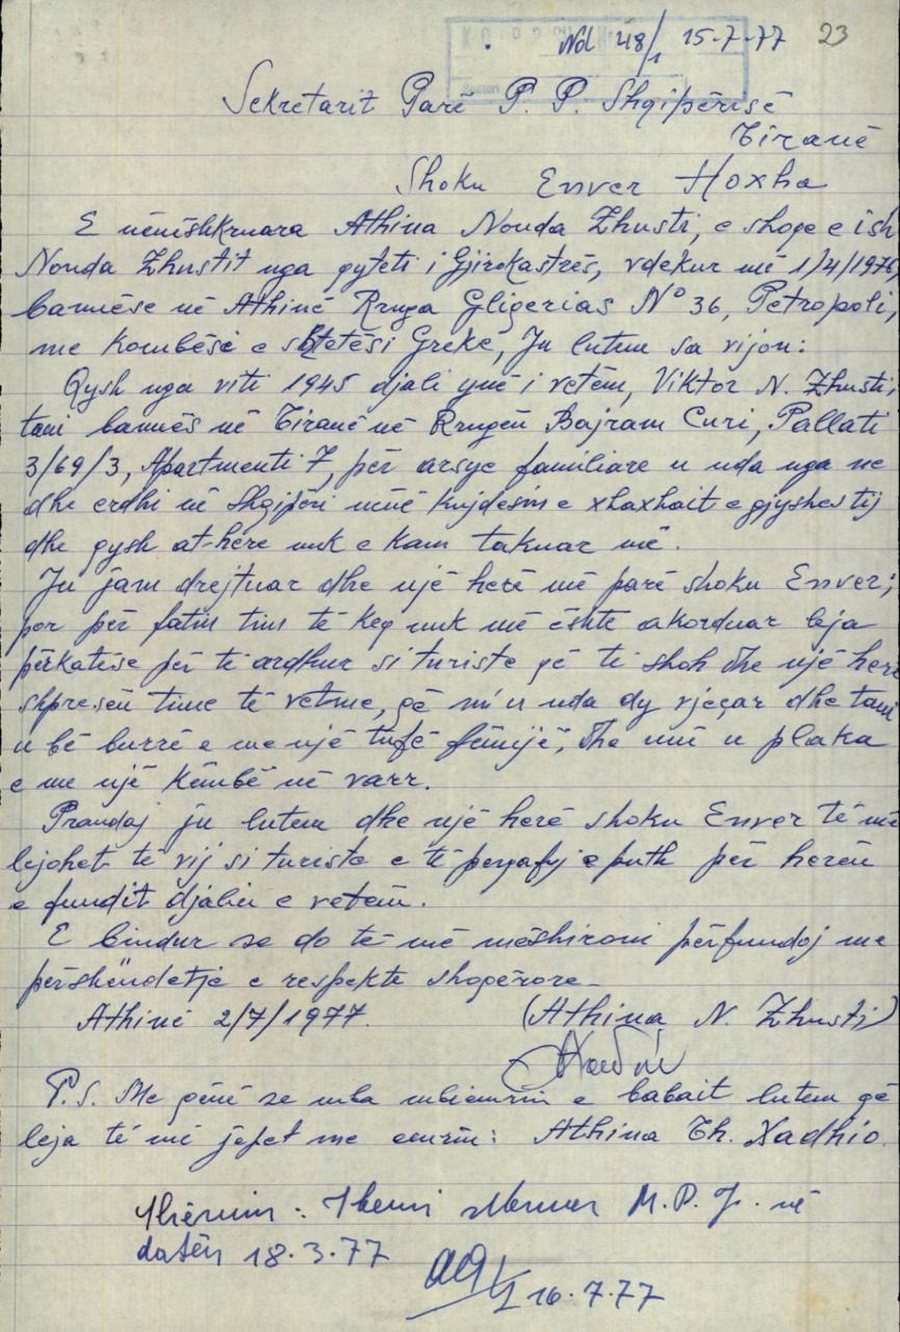 Nd 48/1 15-7-77 23
Sekretarit Parë P. P. Shqipërisë
Tiranë
Shoku Enver Hoxha
E nënishkruara Athina Nonda Zhusti, e shoqe e ish
Nonda Zhustit nga qyteti i Gjirokastrës, vdekur më 1/4/1976,
banuëse në Athinë Rruga Gligerias Nº 36, Petropoli,
me kombësi e shtetësi Greke, Ju lutem sa vijon:
Qysh nga viti 1945 djali ynë i vetëm, Viktor N. Zhusti,
tani banuës në Tiranë në Rrugën Bajram Curi, Pallati
3/69/3, Apartmenti 7, për arsye familiare u nda nga ne
dhe erdhi në Shqipëri nënë kujdesin e xhaxhait e gjyshes tij
dhe qysh at-here nuk e kam takuar më.
Ju jam drejtuar dhe një herë më parë shoku Enver;
por për fatin tim të keq nuk më është akorduar leja
përkatëse për të ardhur si turiste që të shoh dhe një herë
shpresën time të vetme, që m'u nda dy vjeçar dhe tani
u bë burrë e me një tufë fëmijë, dhe unë u plaka
e me një këmbë në varr.
Prandaj ju lutem dhe një herë shoku Enver të më
lejohet të vij si turiste e të përqafoj e puth për herën
e fundit djalin e vetëm.
E bindur se do të më mëshironi përfundoj me
përshëndetje e respekte shoqërore-
Athinë 2/7/1977. (Athina N. Zhusti)
P.S. Me qënë se mba mbiemrin e babait lutem që
leja të më jepet me emrin: Athina Th. Xadhio.
Shënim: I kemi M.P.J. në
datën 18.3.77
16.7.77